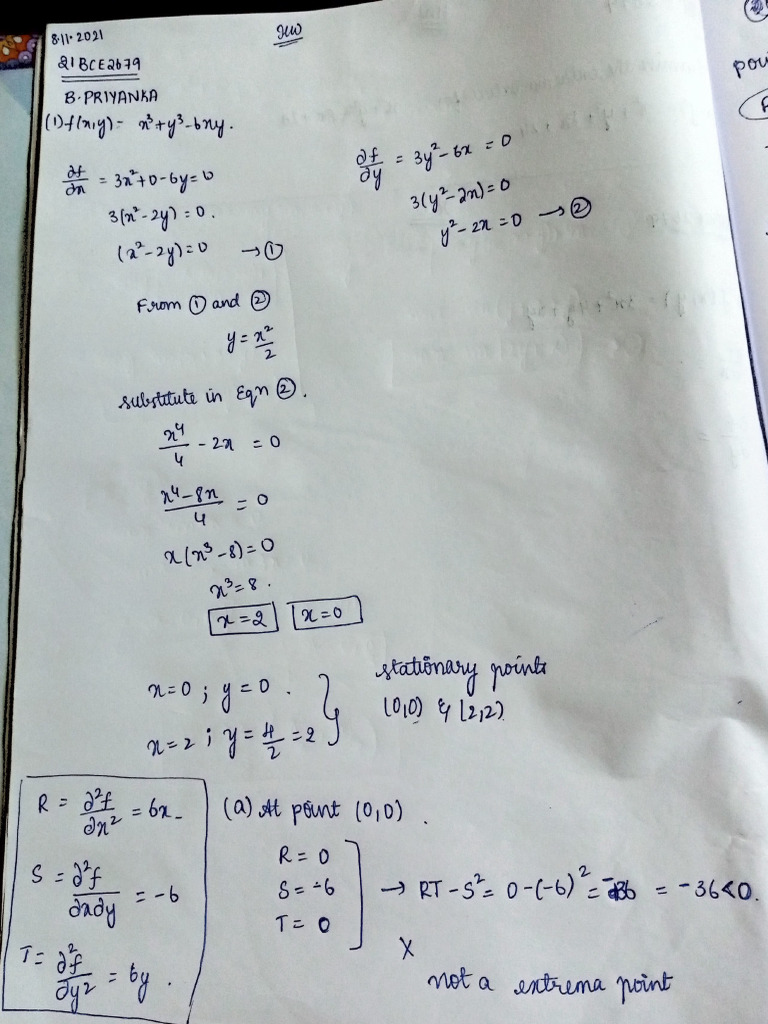 8.11.2021
HW
21BCE2679
B. PRIYANKA
(1) f(x,y) = x³+y³-6xy.
∂f/∂x = 3x²+0-6y=0
3(x²-2y)=0.
(x²-2y)=0 → ①
∂f/∂y = 3y²-6x = 0
3(y²-2x)=0
y²-2x=0 → ②
From ① and ②
y = x²/2
substitute in Eqn ②.
x⁴/4 - 2x = 0
x⁴-8x/4 = 0
x(x³-8)=0
x³=8.
x=2 x=0
x=0; y=0.
x=2; y=4/2=2
stationary points
(0,0) & (2,2)
R = ∂²f/∂x² = 6x
S = ∂²f/∂x∂y = -6
T = ∂²f/∂y² = 6y.
(a) At point (0,0).
R = 0
S = -6
T = 0
→ RT-S² = 0-(-6)² = -36 = -36<0.
X
not a extrema point
pou